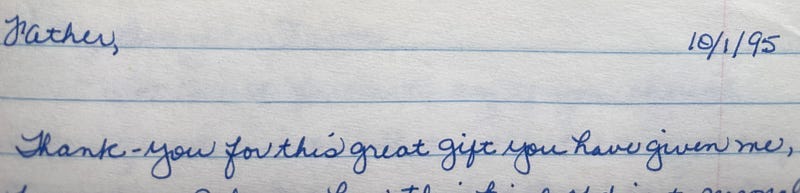 Father, 10/1/95
Thank-you for this great gift you have given me,